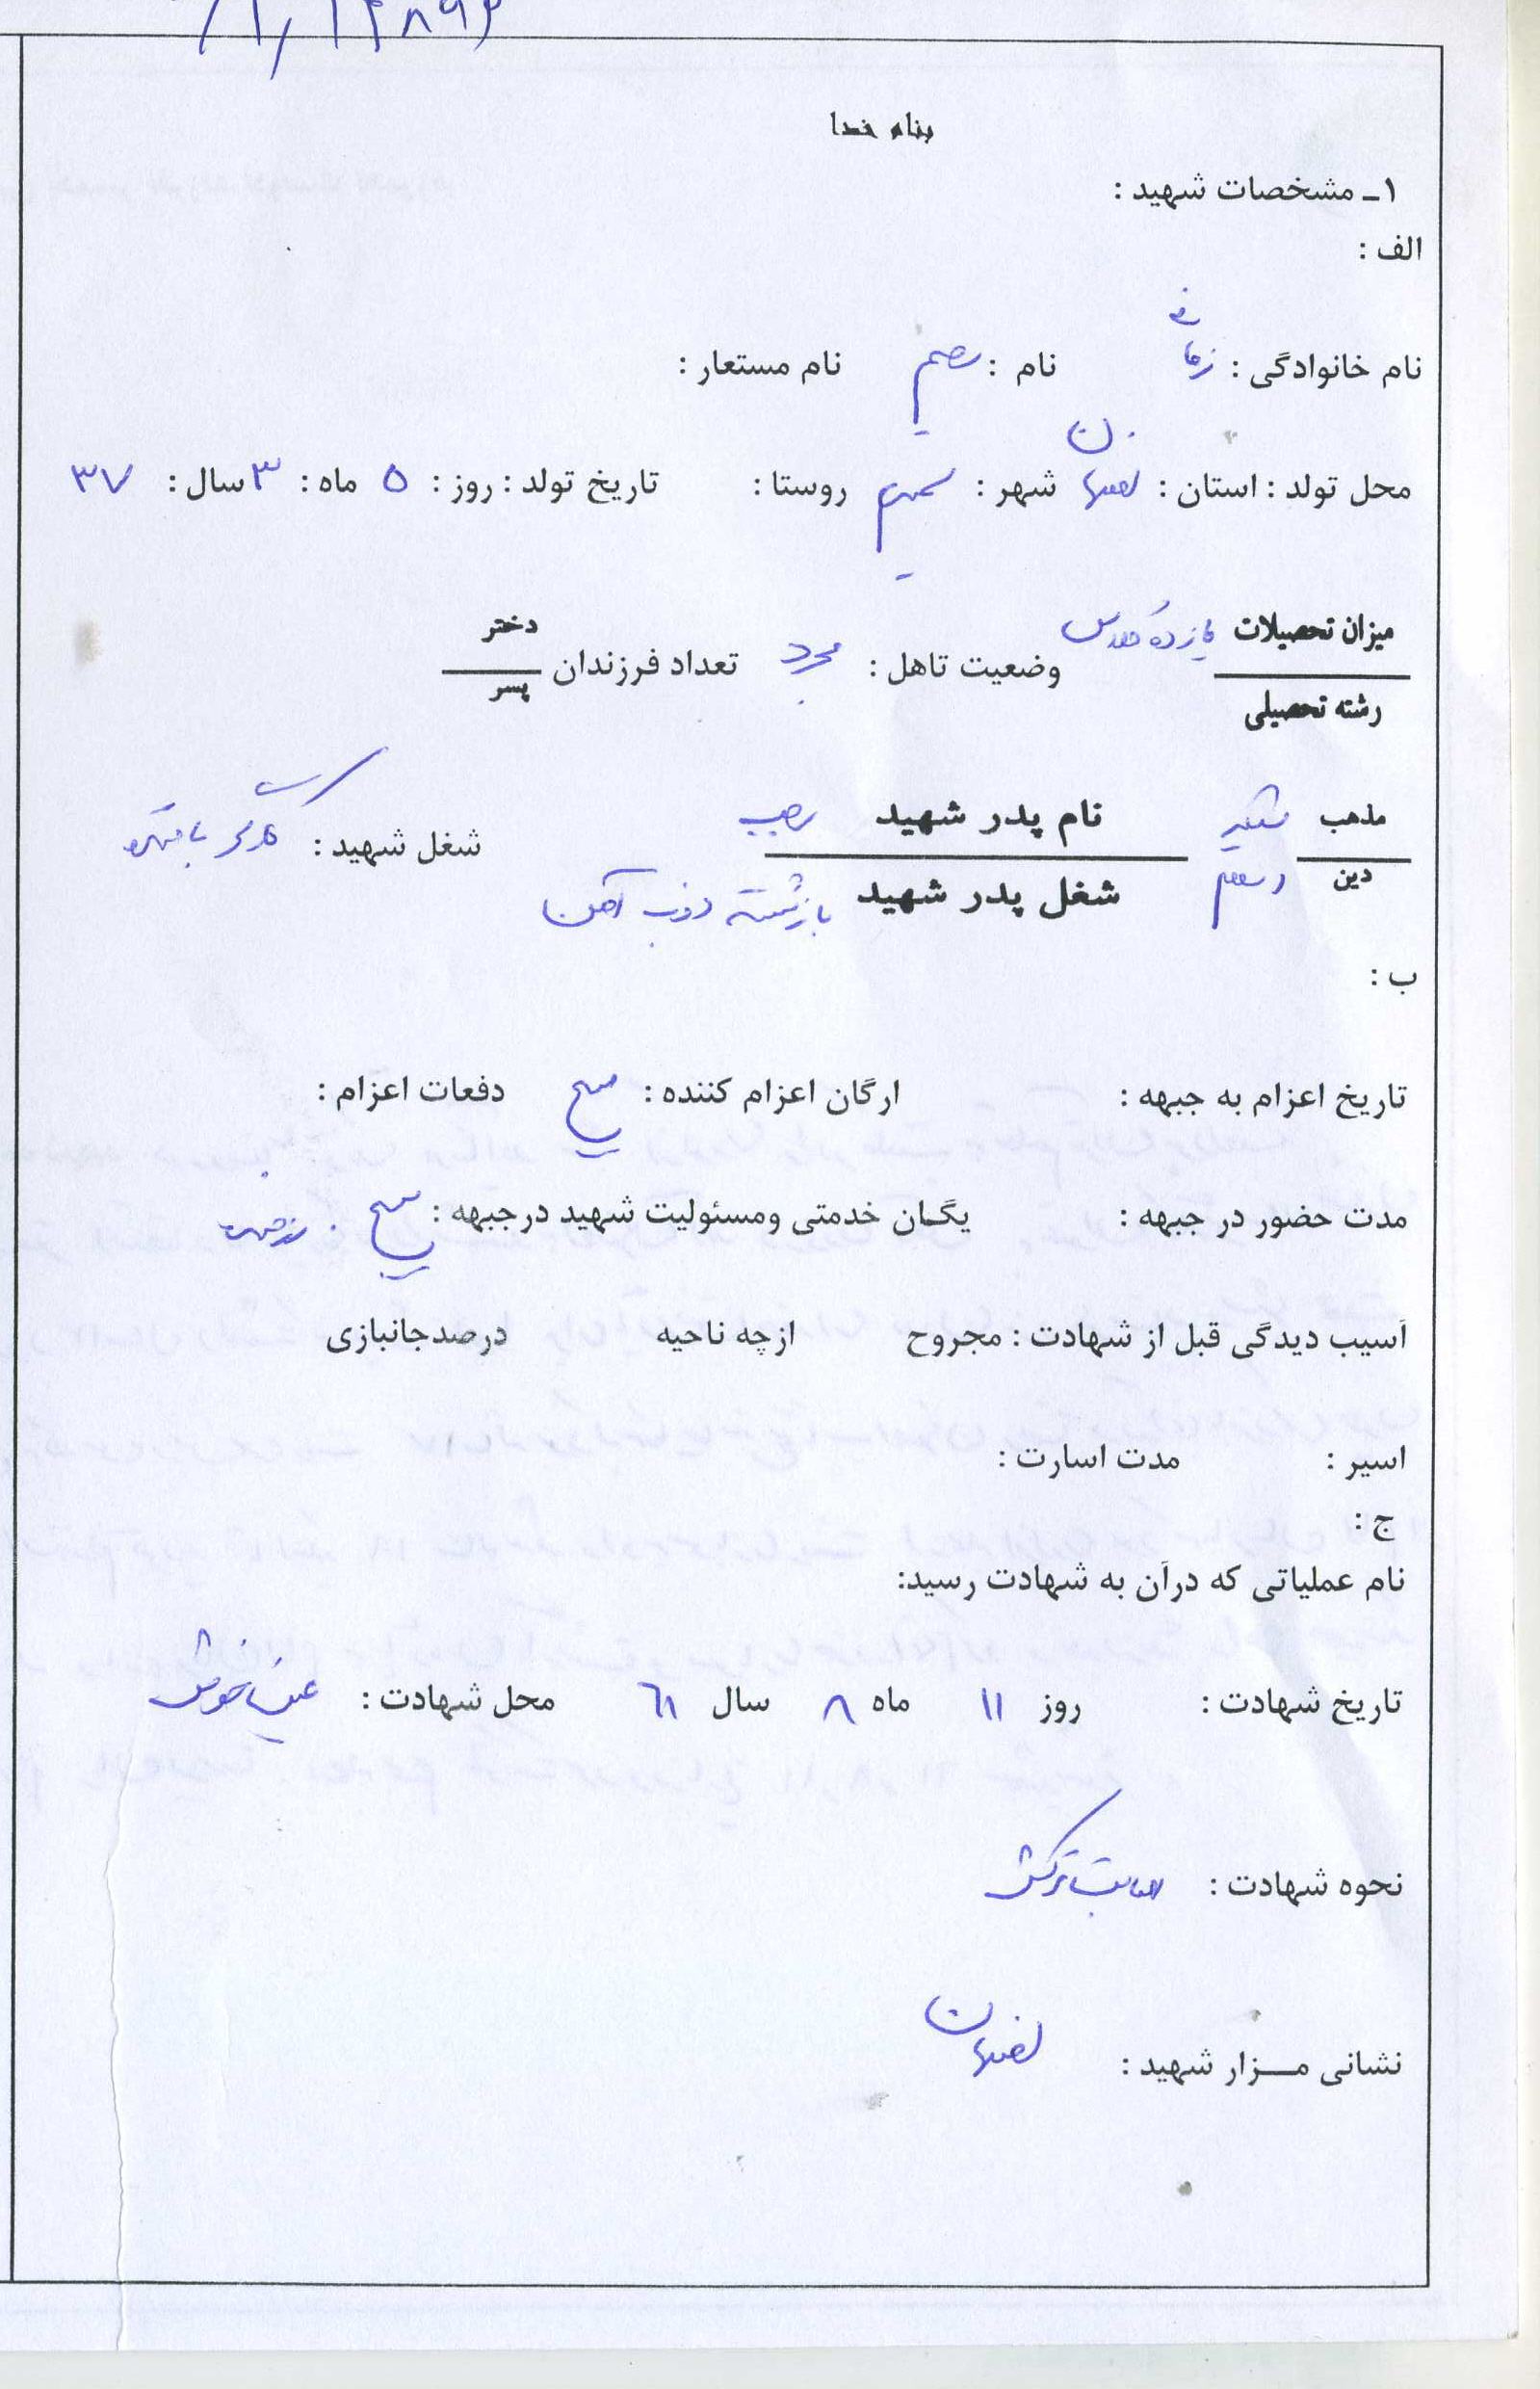 بنام خدا
۱ـ مشخصات شهید :
الف :
نام خانوادگی : زمانی نام : نام مستعار :
محل تولد : استان : اصفهان شهر : روستا : تاریخ تولد : روز : ۵ ماه : ۳ سال : ۳۷
میزان تحصیلات یازده کلاس وضعیت تاهل : مجرد تعداد فرزندان دختر
رشته تحصیلی پسر
مذهب شیعه نام پدر شهید رجب شغل شهید : کارگر
دین اسلام شغل پدر شهید بازنشسته ذوب آهن
ب :
تاریخ اعزام به جبهه : ارگان اعزام کننده : بسیج دفعات اعزام :
مدت حضور در جبهه : یگان خدمتی ومسئولیت شهید درجبهه : بسیج . رزمنده
آسیب دیدگی قبل از شهادت : مجروح ازچه ناحیه درصدجانبازی
اسیر : مدت اسارت :
ج :
نام عملیاتی که درآن به شهادت رسید:
تاریخ شهادت : روز ۱۱ ماه ۸ سال ۶۱ محل شهادت : عین خوش
نحوه شهادت : اصابت ترکش
نشانی مــزار شهید : اصفهان